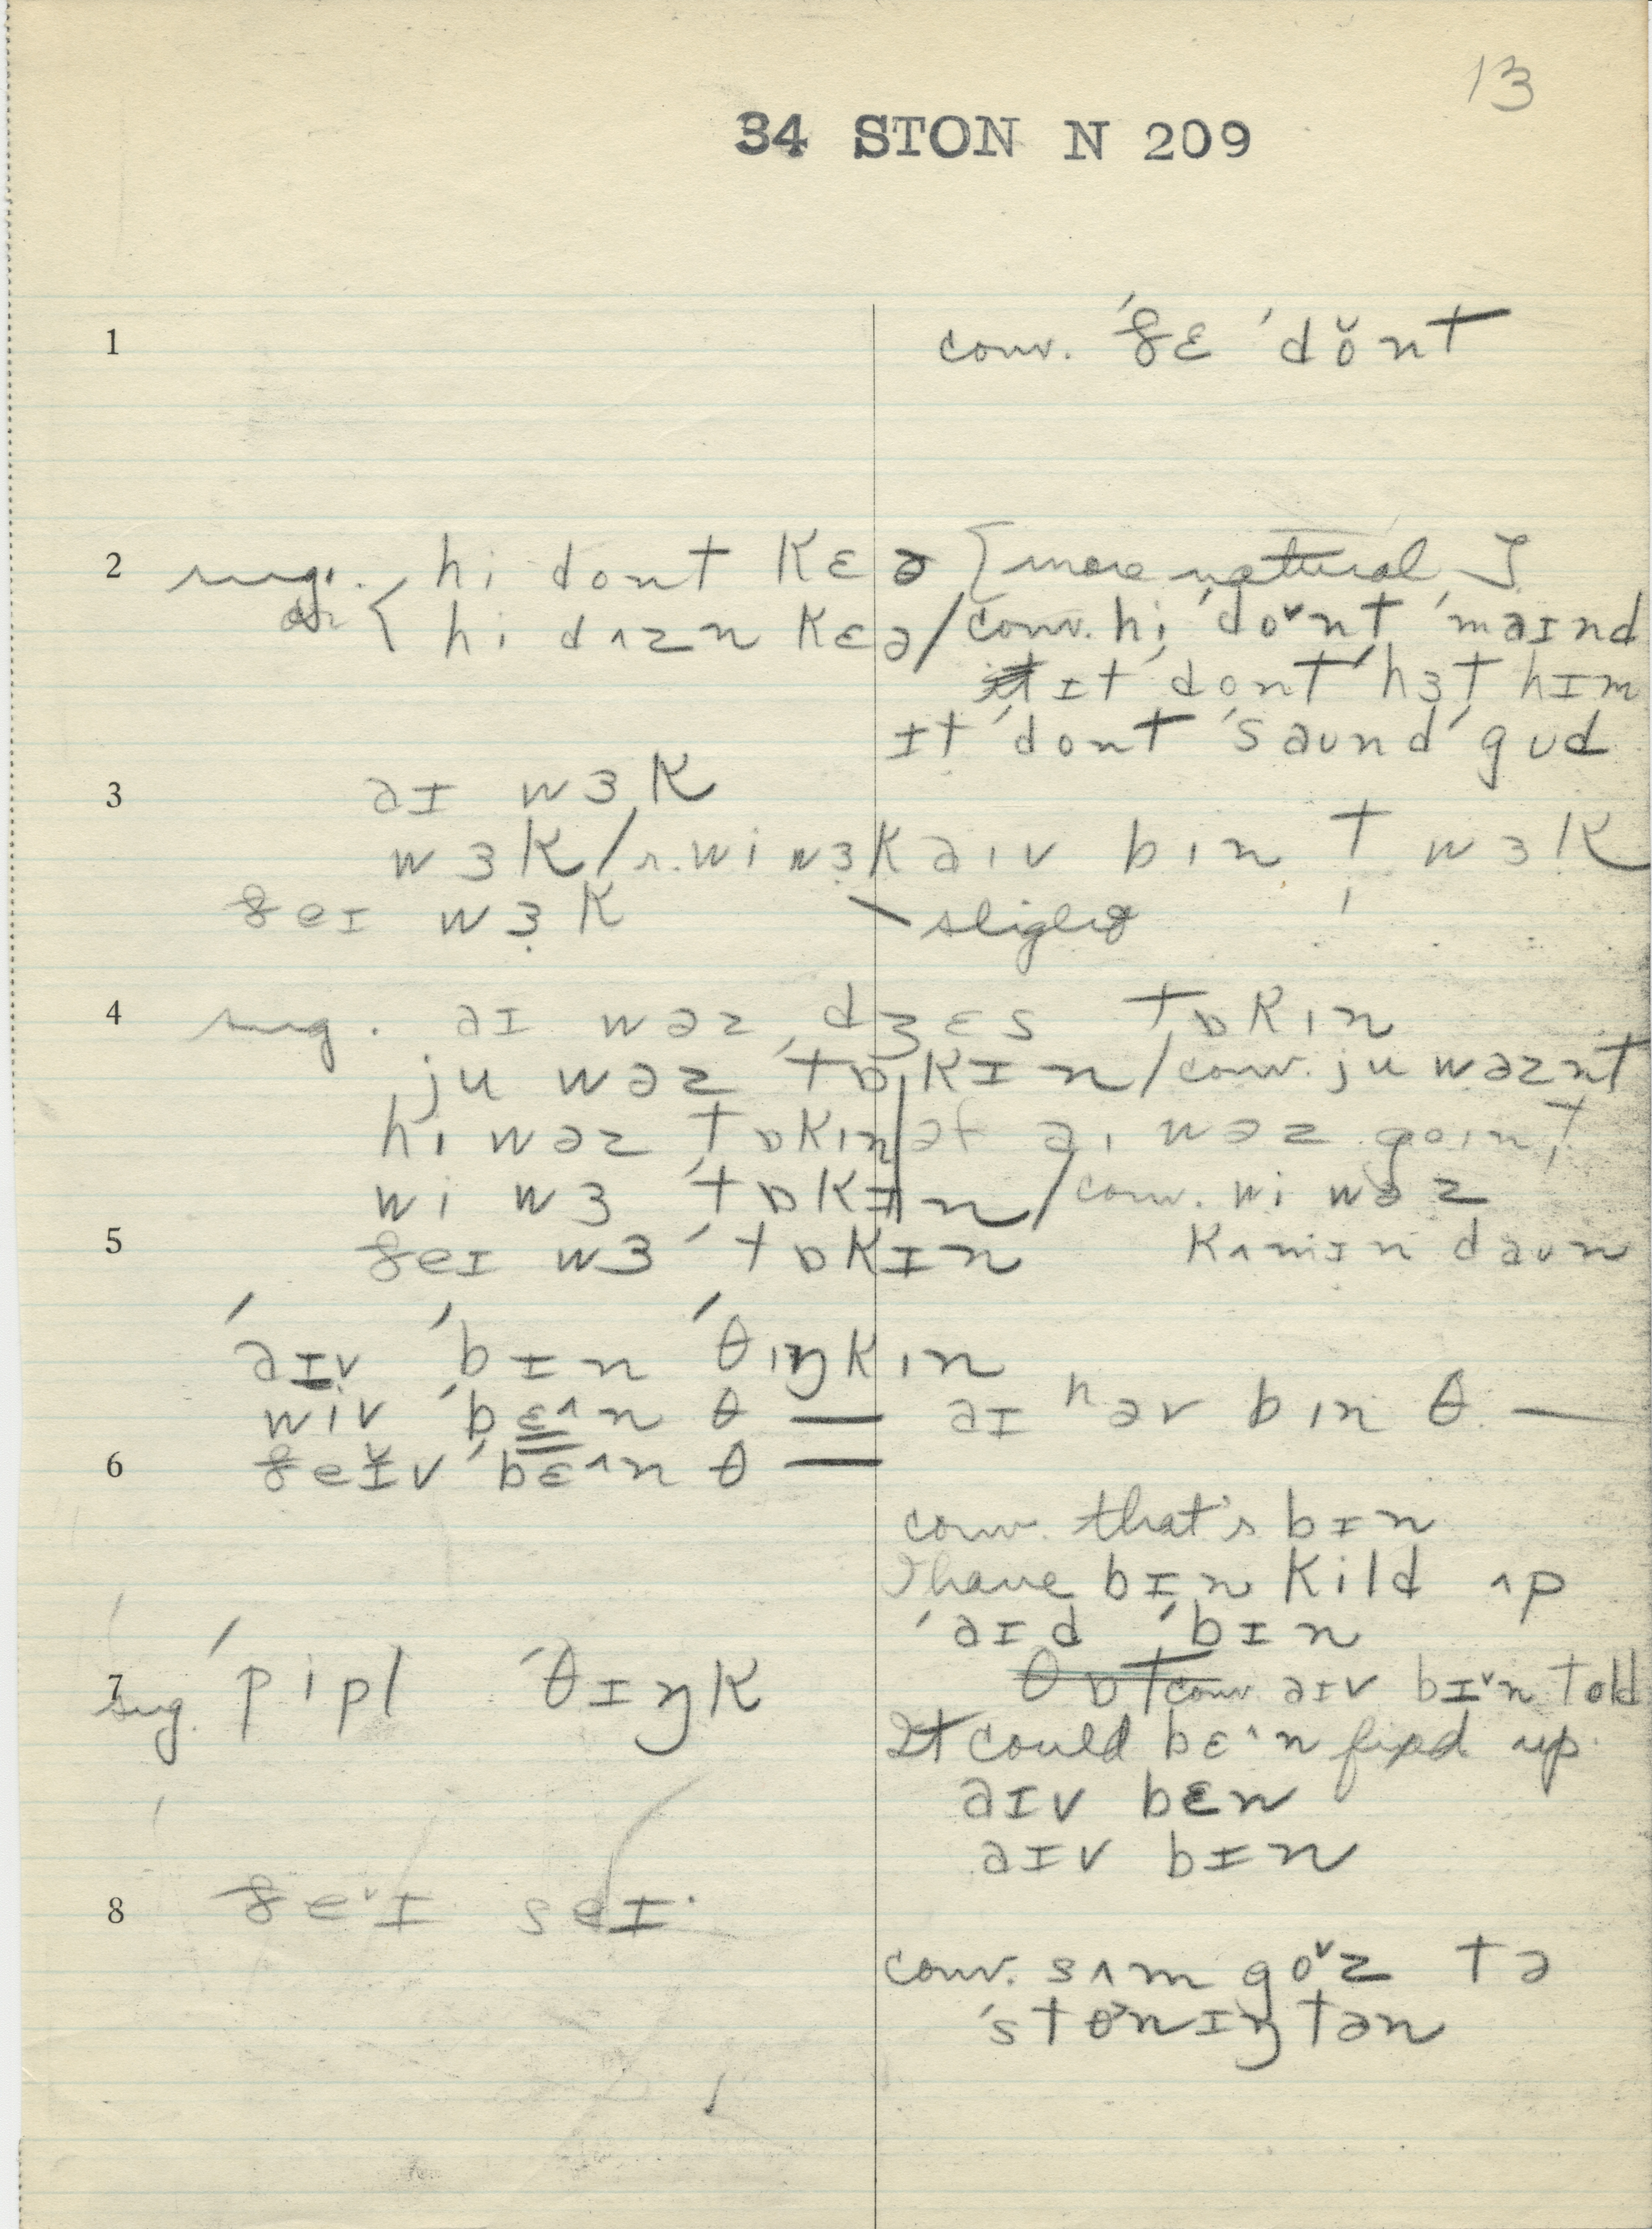 13
34 STON N 209
1 conv. 'ðɛ 'dǒnt
2 sug. hi dont kɛə [more natural]
or { hi dʌzn kɛə / conv. hi 'doˇnt 'maɪnd
ɪt 'dont 'hɜt hɪm
ɪt 'dont 'saund 'gud
3 aɪ wɜk
wɜk / r. wi wɜk aɪv bin t wɜk
ðeɪ wɜk slight
4 sug. aɪ wəz dʒɛs tɒkin
ju wəz 'tɒkɪn / conv. ju wəznt
hi wəz 'tɒkin əf ai wəz goint
wi wɜ 'tɒkɪn / conv. wi wəz
5 ðeɪ wɜ 'tɒkɪn kʌmɪn daun
'aɪv 'bɪn 'θiŋkin
wiv 'bɛ^n θ — aɪ ʰəv bin θ —
6 ðeɪˇv 'bɛ^n θ —
conv. that's bɪn
I have bɪn kild ʌp
'aɪd 'bɪn
7 sug. 'pipl 'θɪŋk conv. aɪv bɪˇn told
It could bɛ^n fixed up
aɪv bɛn
aɪv bɪn
8 ðeˇɪ seɪ
conv. sʌm goˇz tə
'stoˇnɪŋtən